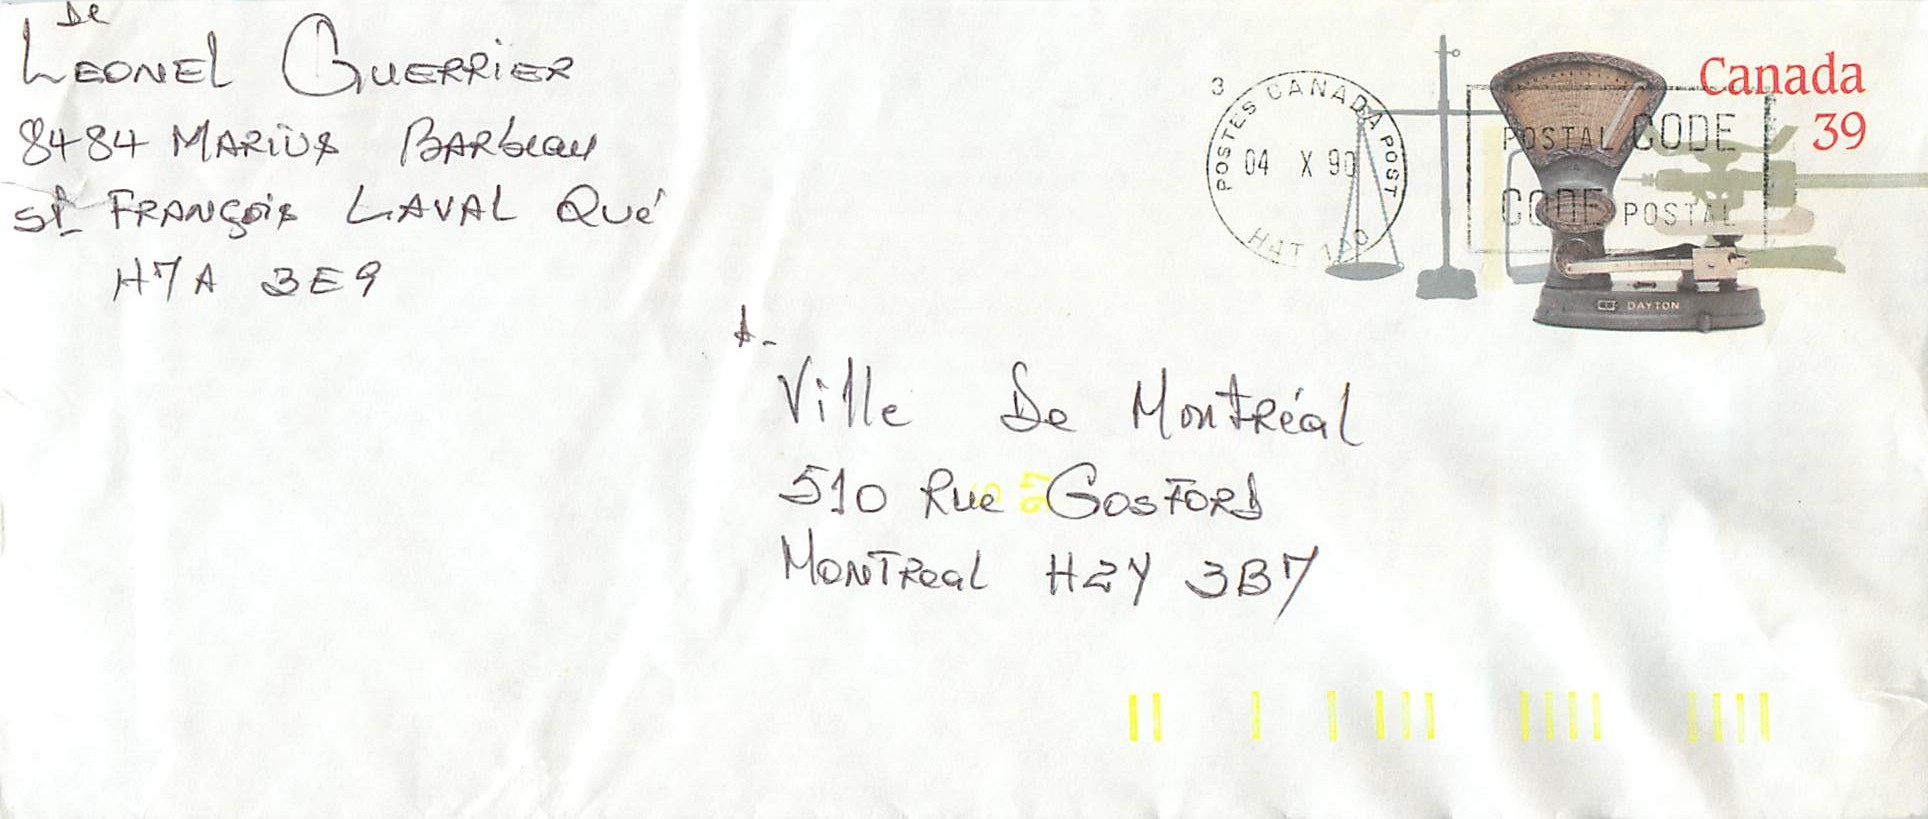 De
Leonel Guerrier
8484 Marius Barbeau
St François Laval Qué
H7A 3E9
3
POSTES CANADA POST
04 X 90
H4T 1
POSTAL CODE
CODE POSTAL
Canada
39
DAYTON
A-
Ville De Montréal
510 Rue Gosford
Montreal H2Y 3B7